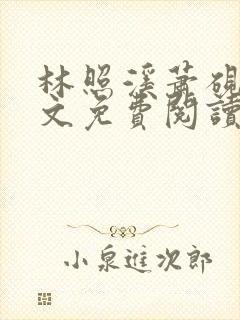 林照溪蕭硯
文免費閱讀
小泉進次郎